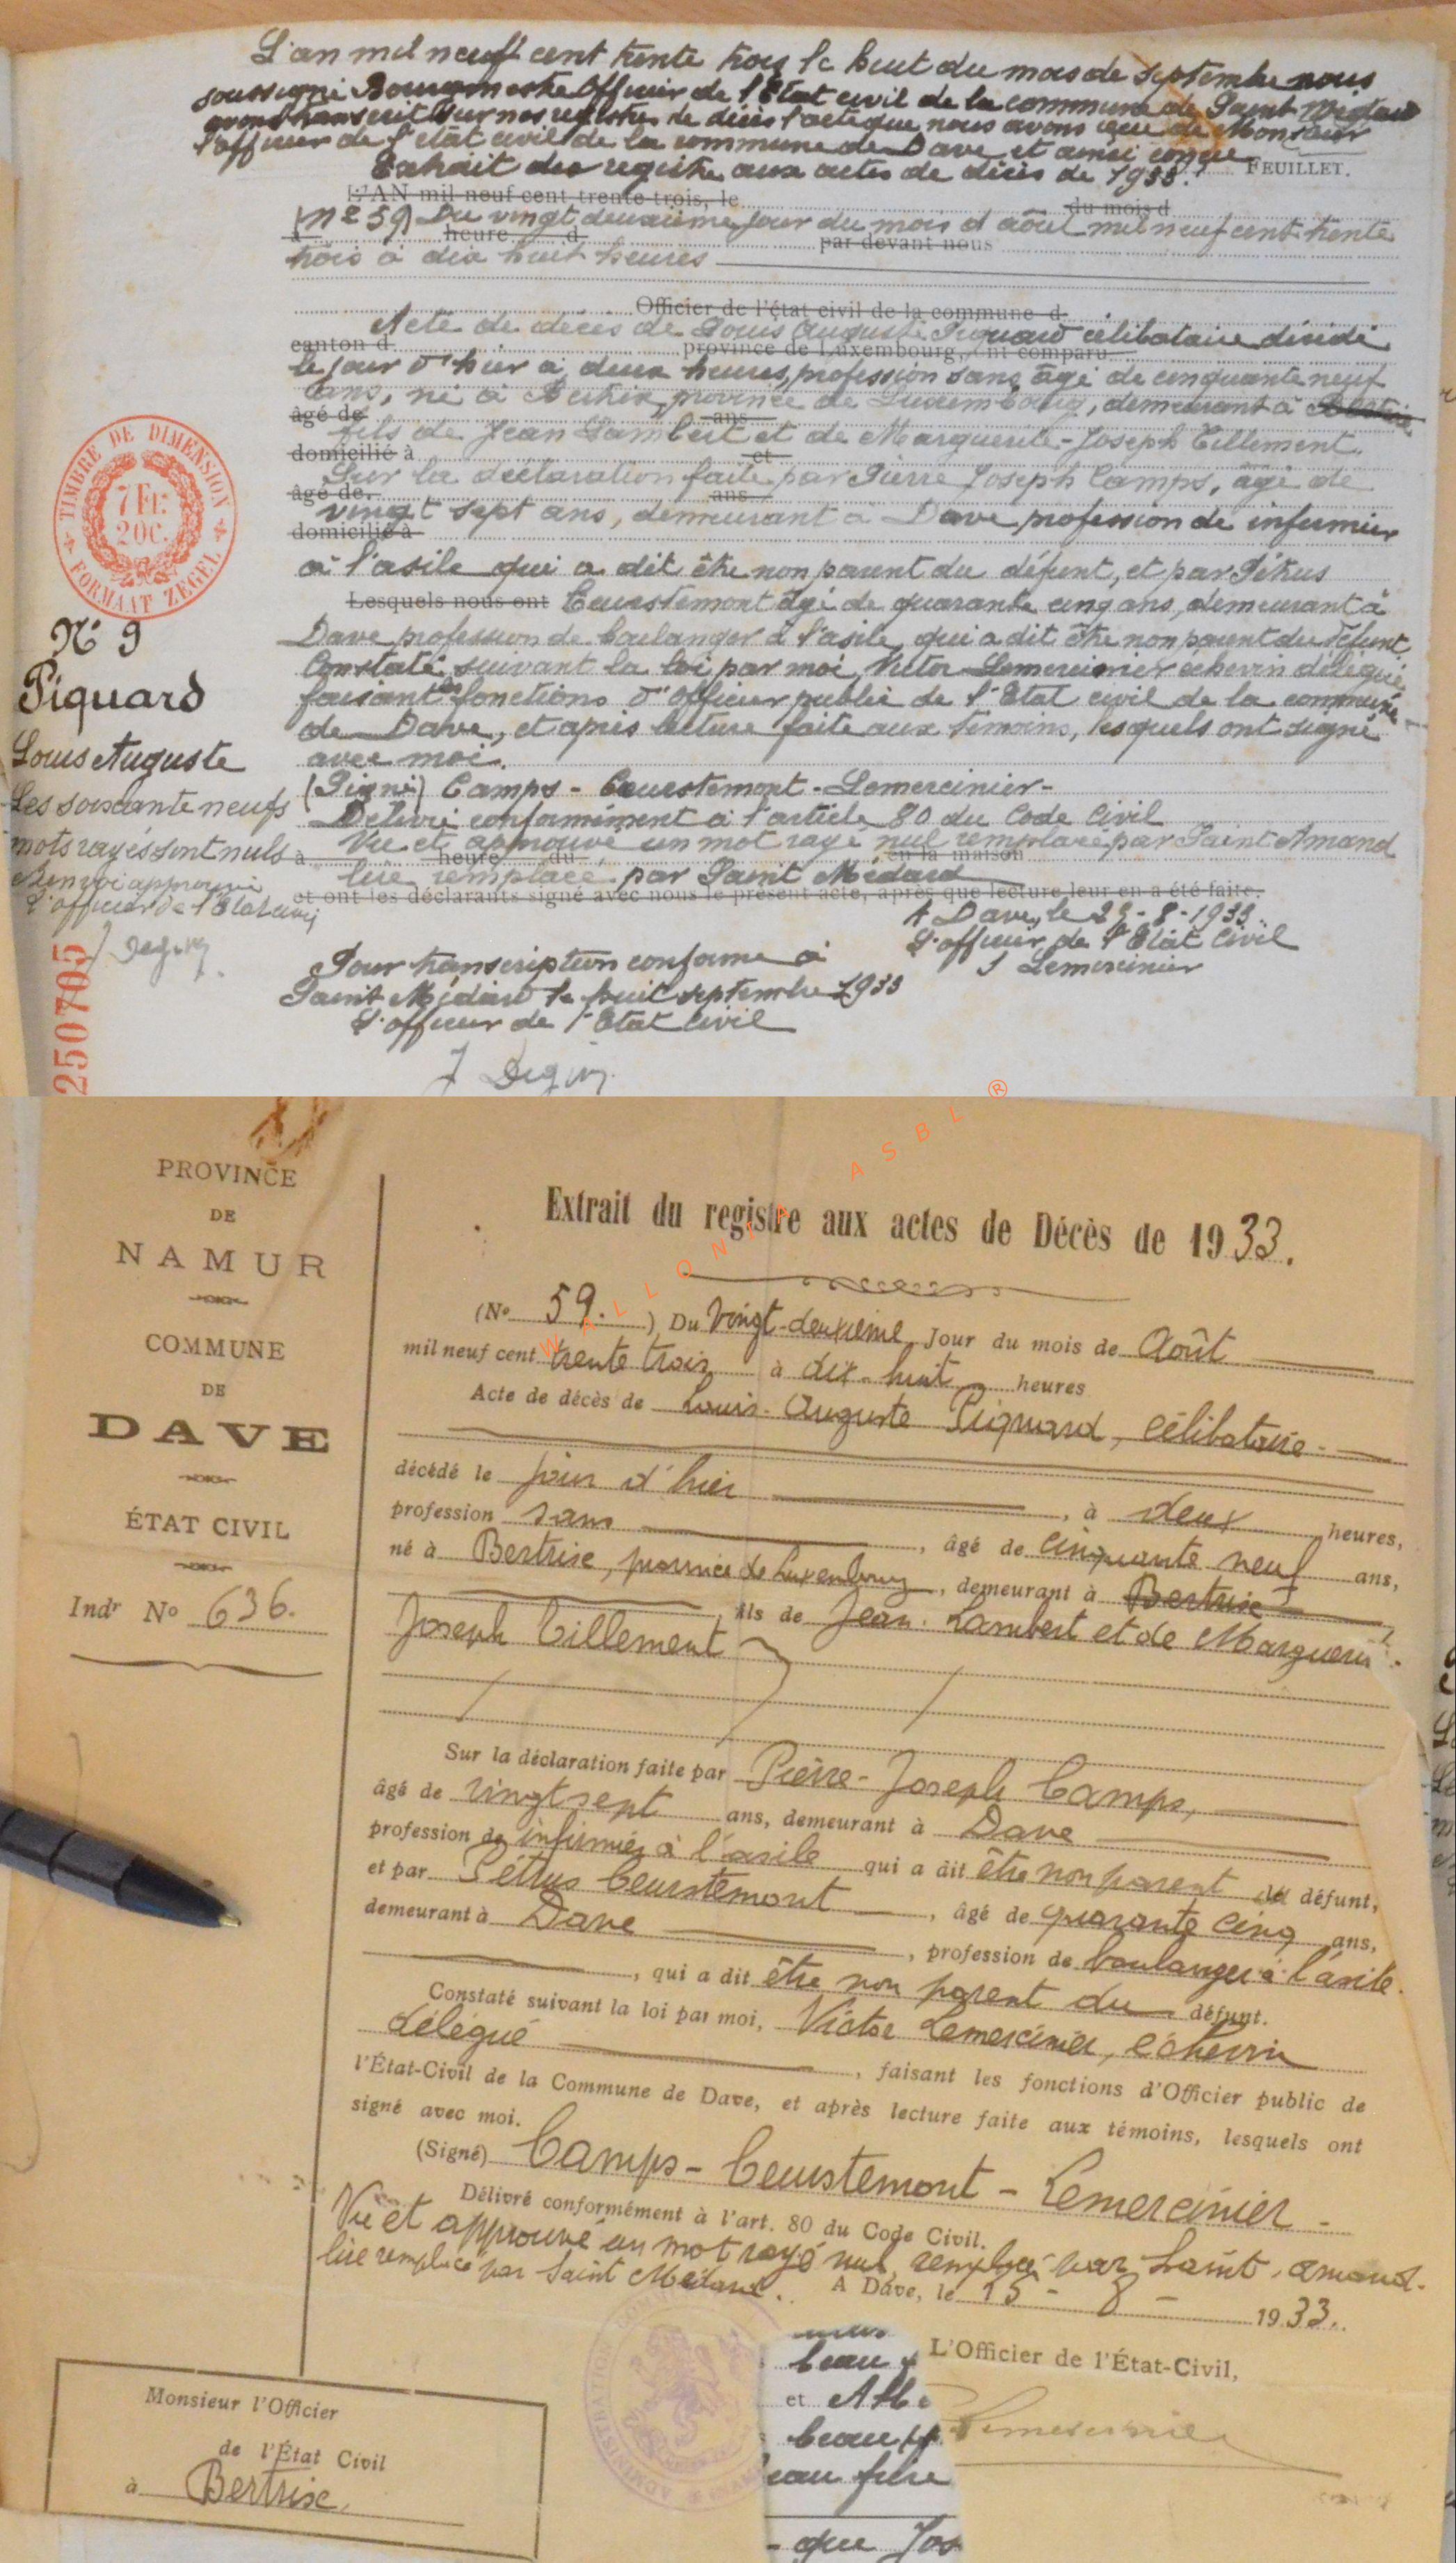 L'an mil neuf cent trente trois le huit du mois de septembre nous
soussigné Bourgmestre Officier de l'Etat civil de la commune de Saint Médard
avons transcrit sur nos registres de décès l'acte que nous avons reçu de Monsieur
l'officier de l'état civil de la commune de Dave et ainsi conçu
Extrait des registre aux actes de décès de 1933.
FEUILLET.
L'AN mil neuf cent trente-trois, le du mois d
(N° 59) Du vingt deuxième jour du mois d août mil neuf cent trente
à heure d par devant nous
trois à dix huit heures
Officier de l'état civil de la commune d
Acte de décès de Louis Auguste Piquard célibataire décédé
canton d province de Luxembourg, ont comparu
le jour d'hier à deux heures, profession sans âgé de cinquante neuf
ans, né à Bertrix province de Luxembourg, demeurant à
âgé de ans
fils de Jean Lambert et de Marguerite-Joseph Tillement.
domicilié à et
Sur la déclaration faite par Pierre Joseph Camps, âgé de
âgé de ans
vingt sept ans, demeurant à Dave profession de infirmier
domicilié à
à l'asile qui a dit être non parent du défunt, et par Pétrus
Lesquels nous ont Ceurstemont âgé de quarante cinq ans, demeurant à
Dave profession de boulanger à l'asile, qui a dit être non parent du défunt.
Constaté suivant la loi par moi, Victor Lemercinier échevin délégué
faisant les fonctions d'officier public de l'Etat civil de la commune
de Dave, et après lecture faite aux témoins, lesquels ont signé
avec moi.
(Signé) Camps - Ceurstemont - Lemercinier -
Délivré conformément à l'article 80 du Code Civil
Vu et approuvé un mot rayé nul remplacé par Saint Amand
à heure du en la maison
lire remplacé par Saint Médard
et ont les déclarants signé avec nous le présent acte, après que lecture leur en a été faite.
A Dave, le 25-8-1933.
L'officier de l'Etat Civil
Lemercinier
Pour transcription conforme à
Saint Médard le huit septembre 1933
L'officier de l'Etat Civil
TIMBRE DE DIMENSION
7 Fr.
20 C.
FORMAAT ZEGEL
N° 9
Piquard
Louis Auguste
Les soixante neufs
mots rayés sont nuls
Renvoi approuvé
L'officier de l'Etat civil
250705
WALLONIA ASBL ®
PROVINCE
DE
NAMUR
COMMUNE
DE
DAVE
ÉTAT CIVIL
Indr No 636.
Extrait du registre aux actes de Décès de 1933.
(No 59.) Du Vingt-deuxième Jour du mois de Août
mil neuf cent trente trois à dix-huit heures
Acte de décès de Louis-Auguste Piquard, célibataire
décédé le jour d'hier, à deux heures,
profession sans, âgé de cinquante neuf ans,
né à Bertrix, province de Luxembourg, demeurant à Bertrix
fils de Jean-Lambert et de Marguerite
Joseph Tillement
Sur la déclaration faite par Pierre-Joseph Camps,
âgé de vingt sept ans, demeurant à Dave
profession de infirmier à l'asile qui a dit être non parent du défunt,
et par Pétrus Ceurstemont, âgé de quarante cinq ans,
demeurant à Dave, profession de boulanger à l'asile
, qui a dit être non parent du défunt.
Constaté suivant la loi par moi, Victor Lemercinier, échevin
délégué, faisant les fonctions d'Officier public de
l'État-Civil de la Commune de Dave, et après lecture faite aux témoins, lesquels ont
signé avec moi.
(Signé) Camps - Ceurstemont - Lemercinier -
Délivré conformément à l'art. 80 du Code Civil.
Vu et approuvé un mot rayé nul, remplacé par Saint-Amand.
lire remplacé par Saint Médard.
A Dave, le 15 - 8 - 1933.
L'Officier de l'État-Civil,
Lemercinier
Monsieur l'Officier
de l'État Civil
à Bertrix
ADMINISTRATION
beau
et Albe
beau
eau frère
que Jos